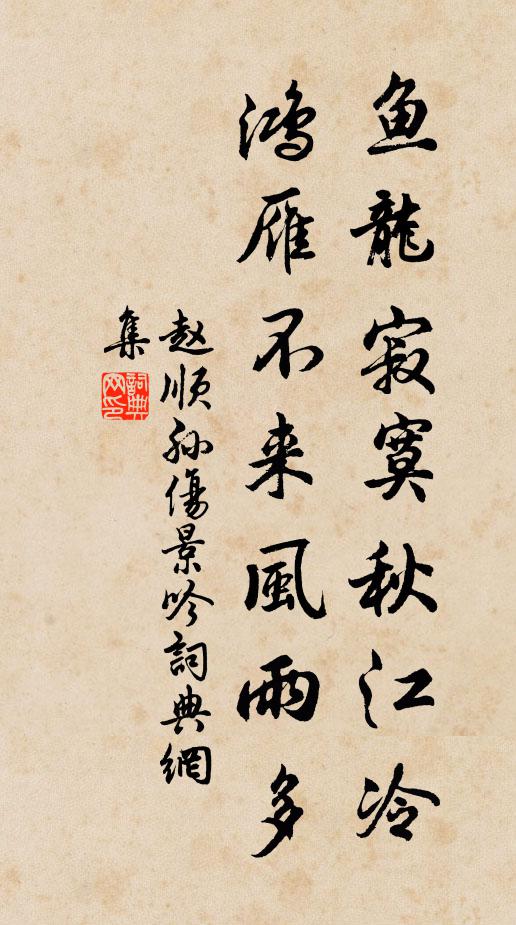 鱼龍寂寞秋江冷
鴻雁不来風雨多
赵順孙傷景吟詞典網
集
詞典
网印